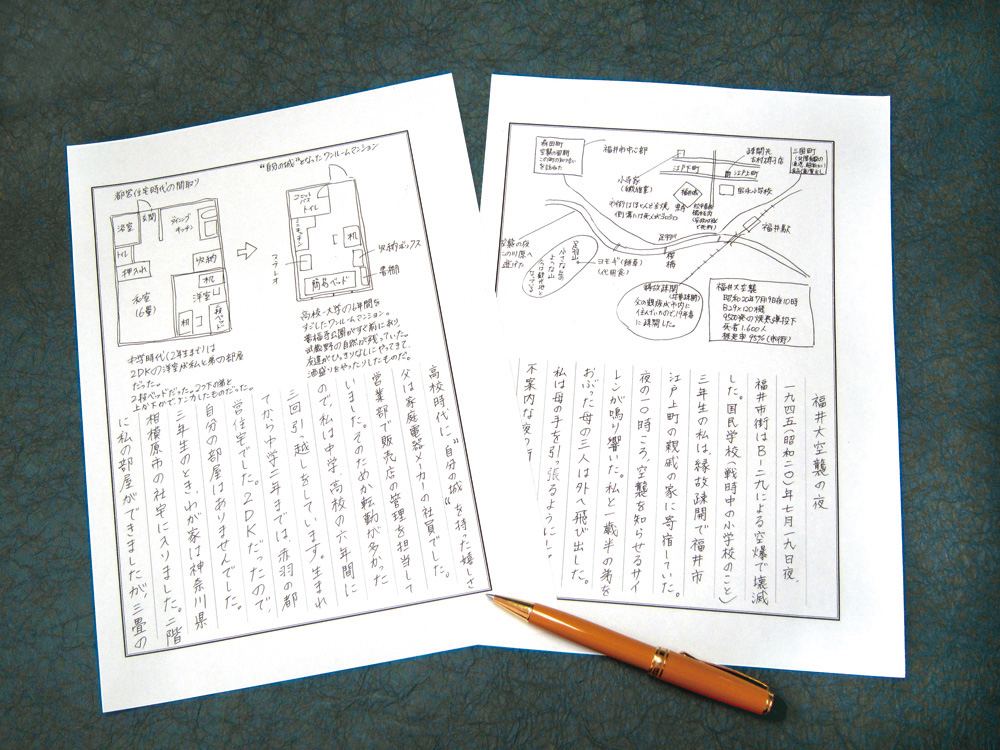 "自分の城"となったワンルームマンション
都営住宅時代の間取り
浴室
玄関
ダイニング
キッチン
トイレ
押入れ
収納
机
洋室
和室
(6畳)
机
2段ベッド
ユニット
バス
トイレ
ミニキッチン
机
収納ボックス
ステレオ
書棚
簡易ベッド
中学時代(2年生まで)は
2DKの洋室が私と弟の部屋
だった。
2段ベッドだった。2つ下の弟と
上か下かでケンカしたものだった。
高校〜大学の6年間を
すごしたワンルームマンション。
善福寺公園がすぐ前にあり、
武蔵野の自然が残っていた。
友達がひっきりなしにやってきて、
酒盛りをやったりしたものだ。
高校時代に"自分の城"を持った嬉しさ
父は家庭電器メーカーの社員でした。
営業部で販売店の管理を担当して
いました。そのためか転勤が多かった
ので、私は中学、高校の六年間に
三回引っ越しをしています。生まれ
てから中学二年までは、赤羽の都
営住宅でした。2DKだったので、
自分の部屋はありませんでした。
三年生のとき、わが家は神奈川県
相模原市の社宅に入りました。二階
に私の部屋ができましたが、三畳の
森田町
福井市中心部
江戸下町
江戸上町
疎開先
三国町
国民小学校
福井城
福井駅
足羽川
桜橋
足羽山
ヨモギ(雑草)
(代用食)
空襲の夜
この川原へ
逃げた
縁故疎開
父の親戚が市内に
住んでいたので19年春
に疎開した。
福井大空襲
昭和20年7月19日夜10時
B29×120機
9500発の焼夷弾投下
死者1,600人
損壊率95%(市街)
福井大空襲の夜
一九四五(昭和二〇)年七月一九日夜、
福井市街はB-二九による空爆で壊滅
した。国民学校(戦時中の小学校のこと)
三年生の私は、縁故疎開で福井市
江戸上町の親戚の家に寄宿していた。
夜の一〇時ころ、空襲を知らせるサイ
レンが鳴り響いた。私と一歳半の弟を
おぶった母の三人は外へ飛び出した。
私は母の手を引っ張るようにして、
不案内な夜の